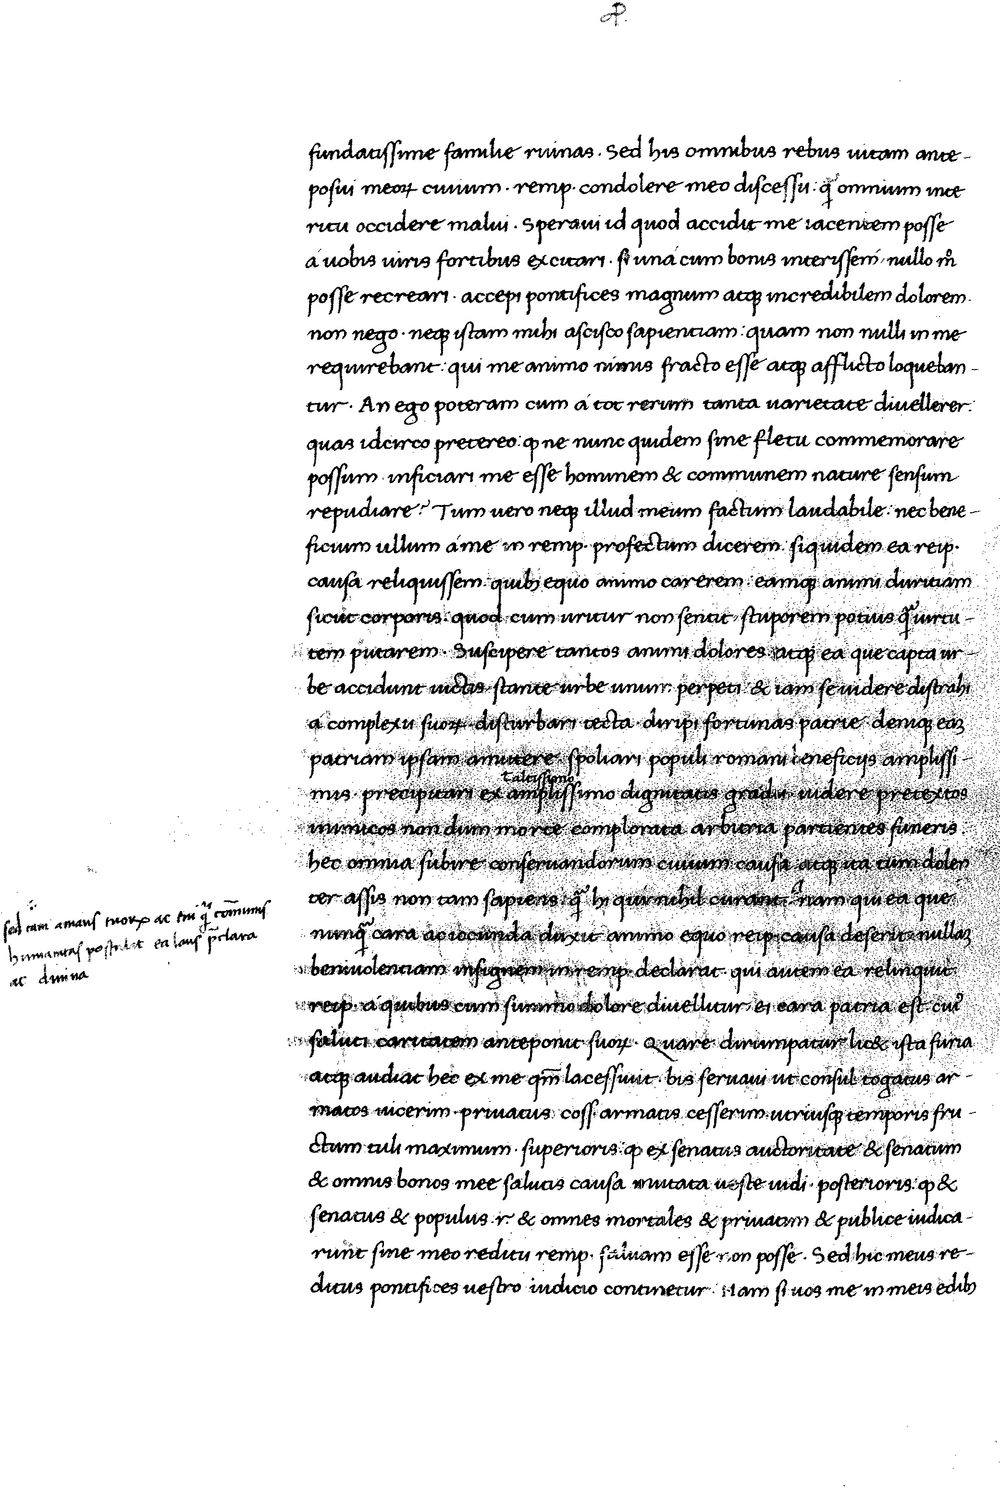 fundatissime familie ruinas · Sed his omnibus rebus uitam ante-
posui meoꝝ ciuium · remp· condolere meo discessu: q̃ omnium inte
ritu occidere malui · Speraui id quod accidit me iacentem posse
á uobis uiris fortibus excitari · si uná cum bonis interissem · nullo m̊
posse recreari · accepi pontifices magnum atqꝫ incredibilem dolorem·
non nego · neqꝫ istam mihi ascisco sapientiam: quam non nulli in me
requirebant: qui me animo nimis fracto esse atqꝫ afflicto loqueban-
tur · An ego poteram cum á tot rerum tanta uarietate diuellerer:
quas idcirco pretereo: ꝙ ne nunc quidem sine fletu commemorare
possum · inficiari me esse hominem & communem nature sensum
repudiare? Tum uero neqꝫ illud meum factum laudabile · nec bene-
ficium ullum á me in remp· profectum dicerem: siquidem ea reip·
causa reliquissem: quibꝫ equo animo carerem: eamqꝫ animi duritiam
sicut corporis: quod cum uritur non sentit · stuporem potius q̃ uirtu-
tem putarem · Suscipere tantos animi dolores atqꝫ ea que capta ur-
be accidunt uictis · stante urbe unum perpeti & iam se uidere distrahi
a complexu suoꝝ · disturbari tecta · diripi fortunas patrie deniqꝫ eaꝫ
patriam ipsam amittere · spoliari populi romani beneficijs amplissi-
ł altissimo
mis · precipitari ex amplissimo dignitatis gradu · uidere pretextos
inimicos non dum morte complorata arbitria partientes funeris:
hec omnia subire conseruandorum ciuium causa atqꝫ ita cum dolen
ter assis non tam sapiens q̃ hi qui nihil curant: nam qui ea que
nunq̃ cara ac iocunda duxit animo equo reip· causa deserit · nullaꝫ
beniuolentiam insignem in remp· declarat · qui autem ea relinquit
reip· á quibus cum summo dolore diuellitur · ei cara patria est · cuiꝰ
saluti caritatem anteponit suoꝝ · Quare dirumpatur lic& ista furia
atqꝫ audiat hec ex me qm̄ lacessiuit · bis seruaui ut consul togatus ar-
matos uicerim · priuatus coss· armatis cesserim · utriusqꝫ temporis fru-
ctum tuli maximum · superioris: ꝙ ex senatus auctoritate & senatum
& omnis bonos mee salutis causa mutata ueste uidi · posterioris: ꝙ &
senatus & populus ·r· & omnes mortales & priuatim & publice iudica-
runt sine meo reditu remp· saluam esse non posse · Sed hic meus re-
ditus pontifices uestro iudicio continetur · Nam si uos me in meis edibꝫ
sed tam amans tuoꝝ ac tui q̃ cōmunis
humanitas postulat ea laus p̄clara
ac diuina